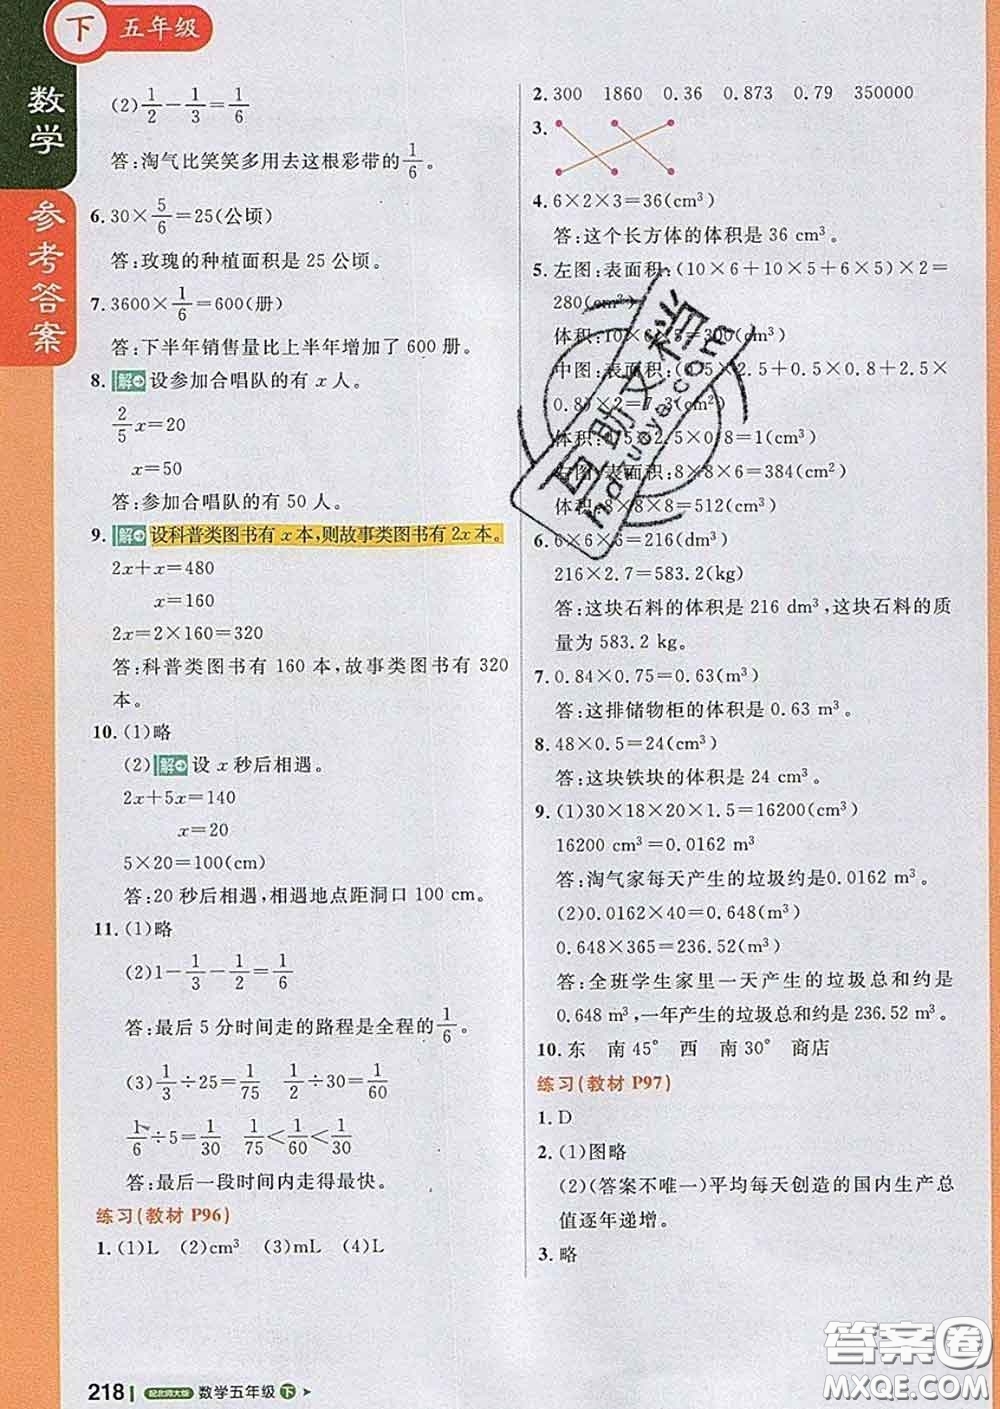 下 五年级
数学
参考答案
(2)1/2-1/3=1/6
答:淘气比笑笑多用去这根彩带的1/6。
6. 30×5/6=25(公顷)
答:玫瑰的种植面积是25公顷。
7. 3600×1/6=600(册)
答:下半年销售量比上半年增加了600册。
8. 解 设参加合唱队的有x人。
2/5x=20
x=50
答:参加合唱队的有50人。
9. 解 设科普类图书有x本,则故事类图书有2x本。
2x+x=480
x=160
2x=2×160=320
答:科普类图书有160本,故事类图书有320
本。
10. (1)略
(2)解 设x秒后相遇。
2x+5x=140
x=20
5×20=100(cm)
答:20秒后相遇,相遇地点距洞口100 cm。
11. (1)略
(2)1-1/3-1/2=1/6
答:最后5分时间走的路程是全程的1/6。
(3)1/3÷25=1/75 1/2÷30=1/60
1/6÷5=1/30 1/75<1/60<1/30
答:最后一段时间内走得最快。
练习(教材 P96)
1. (1)L (2)cm³ (3)mL (4)L
2. 300 1860 0.36 0.873 0.79 350000
3.
4. 6×2×3=36(cm³)
答:这个长方体的体积是36 cm³。
5. 左图:表面积:(10×6+10×5+6×5)×2=
280(cm²)
体积:10×6×5=300(cm³)
中图:表面积:(2.5+0.5×0.8+2.5×
0.8)×2=7.3(cm²)
体积:0.5×2.5×0.8=1(cm³)
右图:表面积:8×8×6=384(cm²)
体积:8×8×8=512(cm³)
6. 6×6×6=216(dm³)
216×2.7=583.2(kg)
答:这块石料的体积是216 dm³,这块石料的质
量为583.2 kg。
7. 0.84×0.75=0.63(m³)
答:这排储物柜的体积是0.63 m³。
8. 48×0.5=24(cm³)
答:这块铁块的体积是24 cm³。
9. (1)30×18×20×1.5=16200(cm³)
16200 cm³=0.0162 m³
答:淘气家每天产生的垃圾约是0.0162 m³。
(2)0.0162×40=0.648(m³)
0.648×365=236.52(m³)
答:全班学生家里一天产生的垃圾总和约是
0.648 m³,一年产生的垃圾总和约是236.52 m³。
10. 东 南45° 西 南30° 商店
练习(教材 P97)
1. D
2. (1)图略
(2)(答案不唯一)平均每天创造的国内生产总
值逐年递增。
3. 略
218 配北师大版 数学五年级 下
答案圈
MXQE.COM